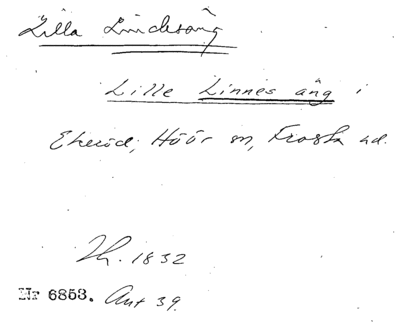 Lilla Lindesäng
Lille Linnes äng i
Ekeröd, Höör sn, Frosta hd.
Th. 1832
Nr 6853. Ant 39.